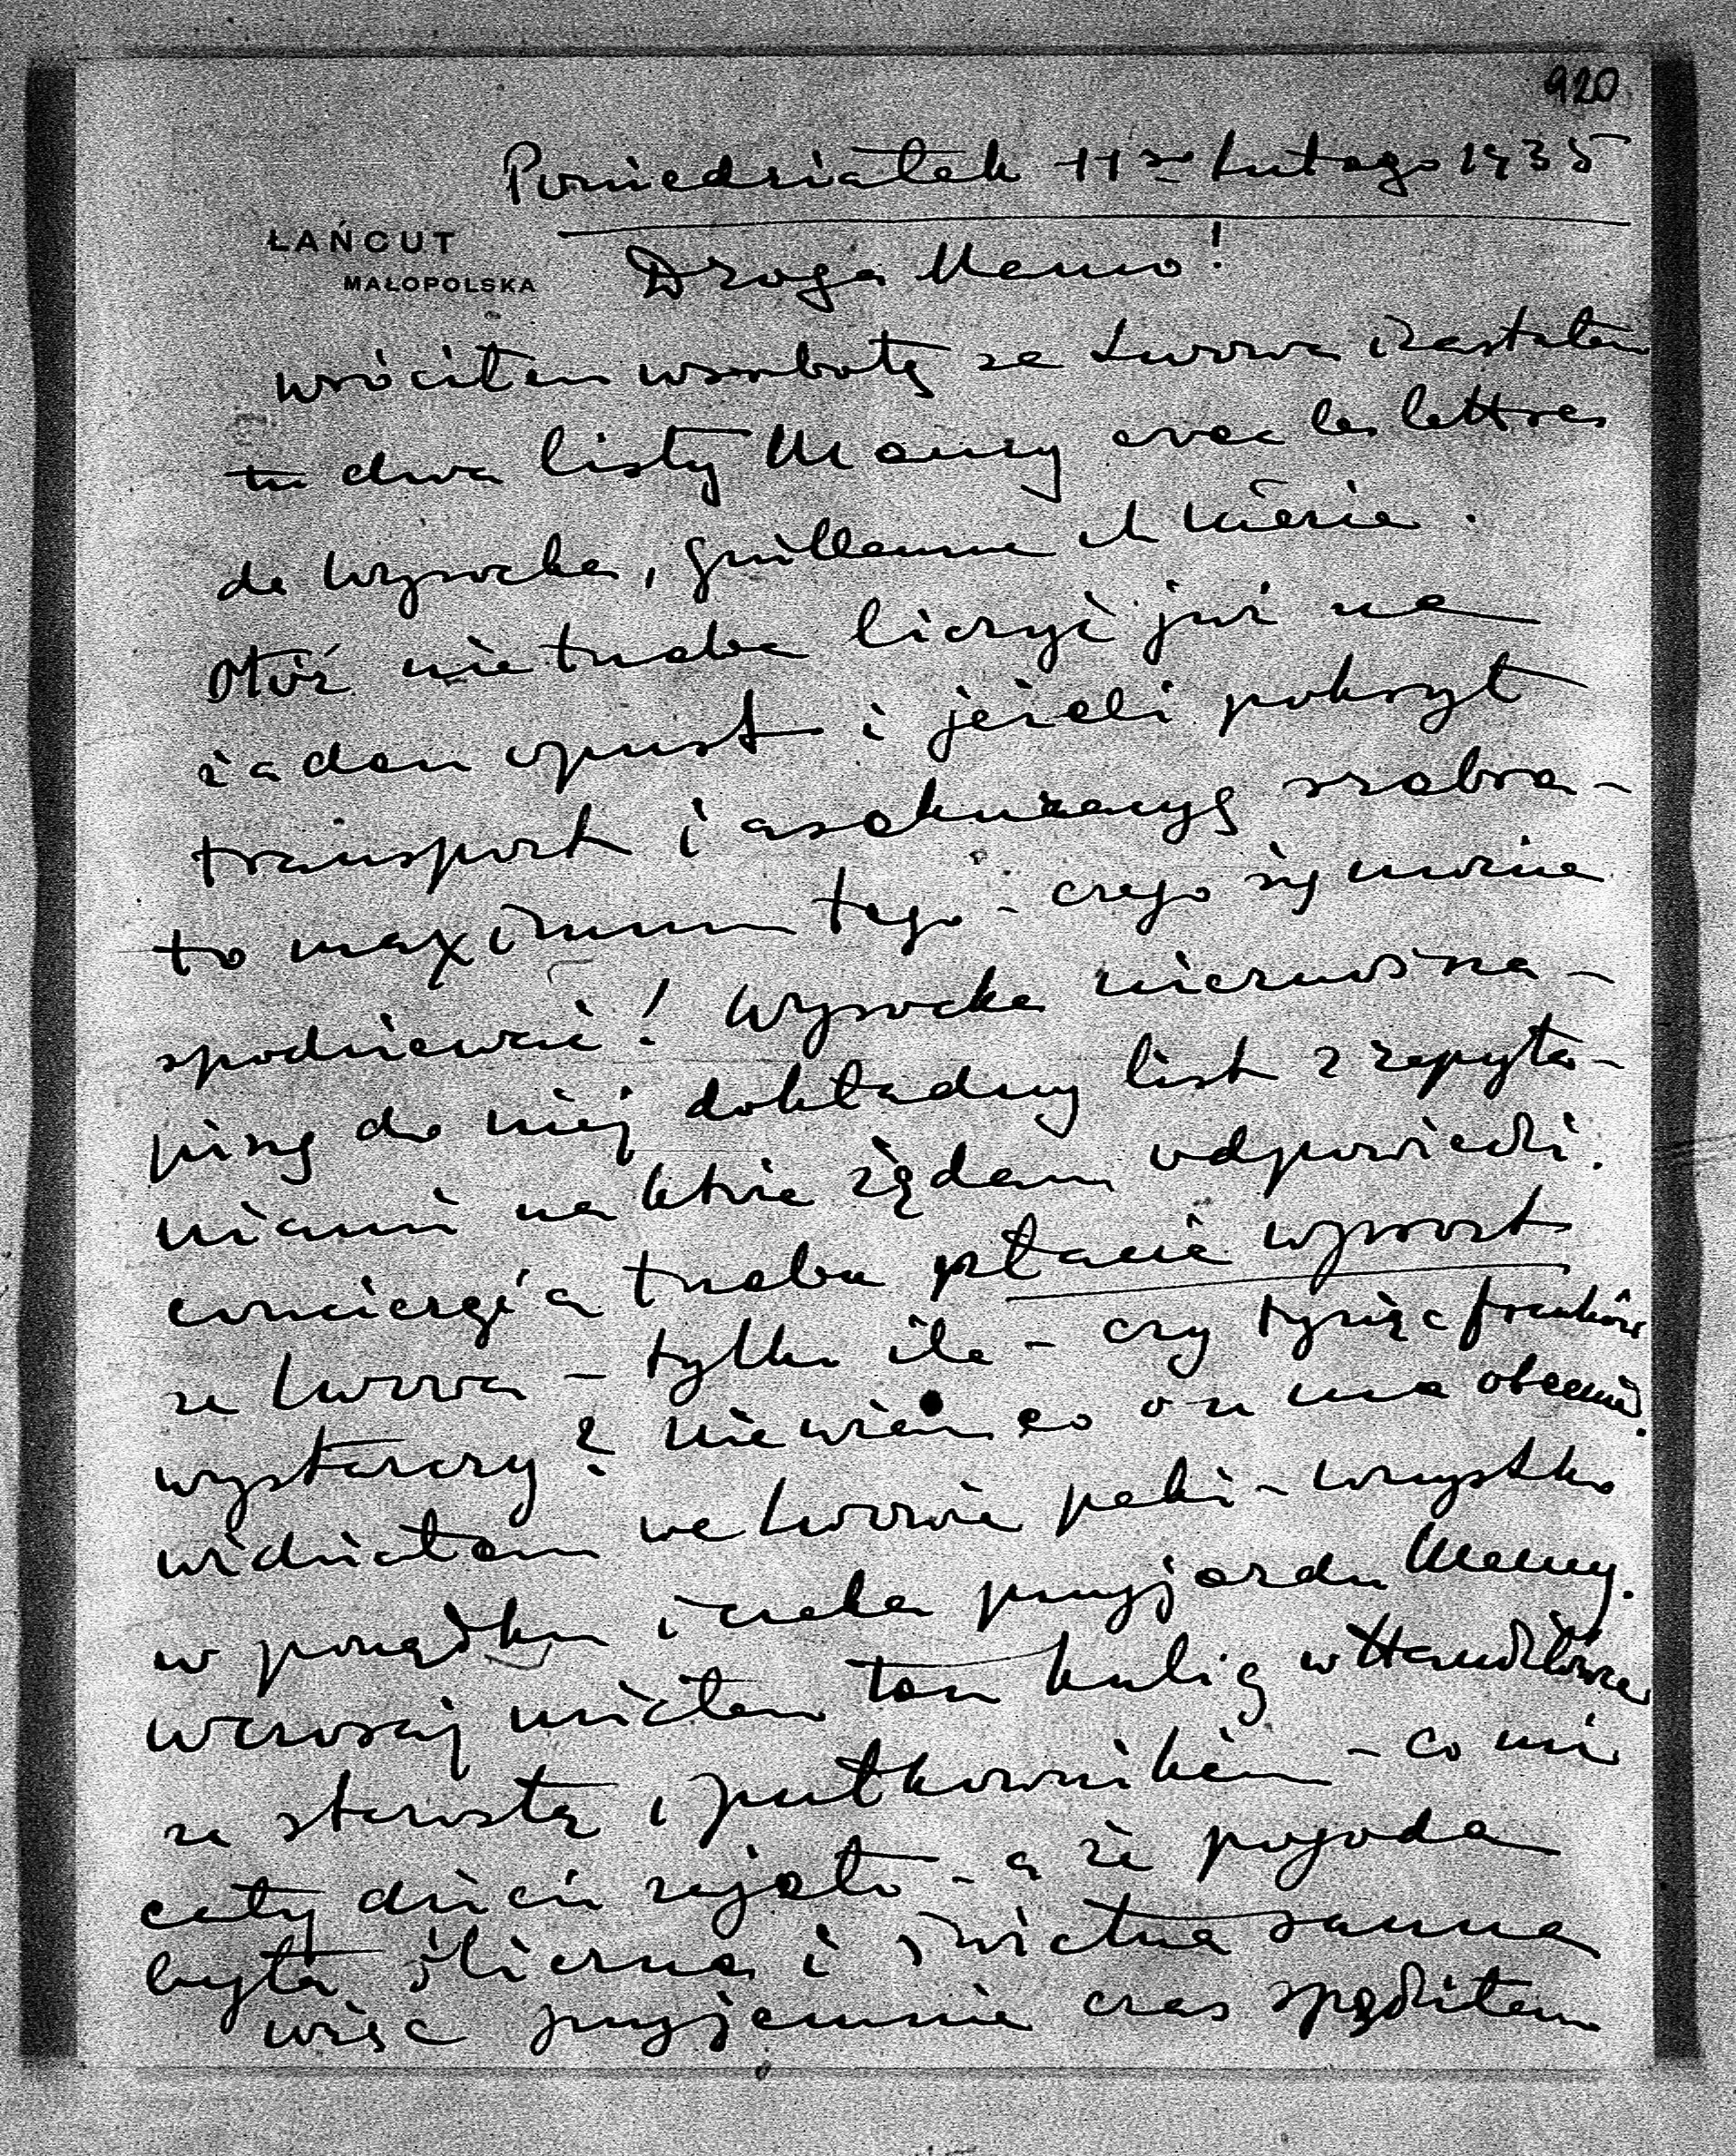 920
Poniedziałek 11go Lutego 1935
ŁAŃCUT
MAŁOPOLSKA
Droga Mamo!
wróciłem w sobotę ze Lwowa i zastałem
tu dwa listy Mamy avec les lettres
de Wysocka, Guillaume et
Otóż nie trzeba liczyć już na
żaden opust i jeżeli pokryt
transport i asekuracyę
to maximum tego - czego się można
spodziewać! Wysocka nieznośna -
piszę do niej dokładny list z zapyta-
niami na które żądam odpowiedzi.
concierge'a trzeba płacić wprost
ze Lwowa - tylko ile - czy tysiąc franków
wystarczy? Nie wiem co on ma obecnie.
widziałem we Lwowie paki - wszystko
w porządku i czeka przyjazdu Mamy.
wczoraj miałem ten kulig w Handzlówce
ze starostą i pułkownikiem - co mi
cały dzień zajęło - a że pogoda
była śliczna i świetna sanna
więc przyjemnie czas spędziłem